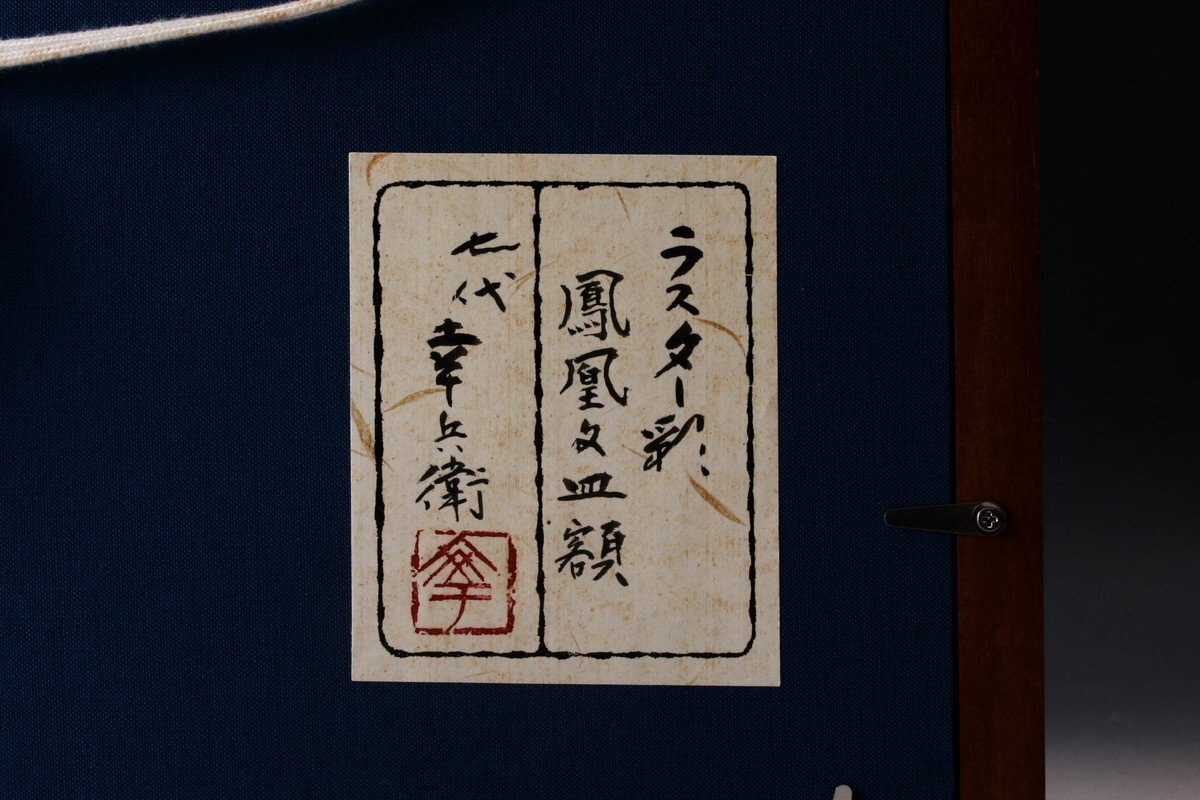 ラスター彩
鳳凰文皿額
七代 幸兵衛
幸